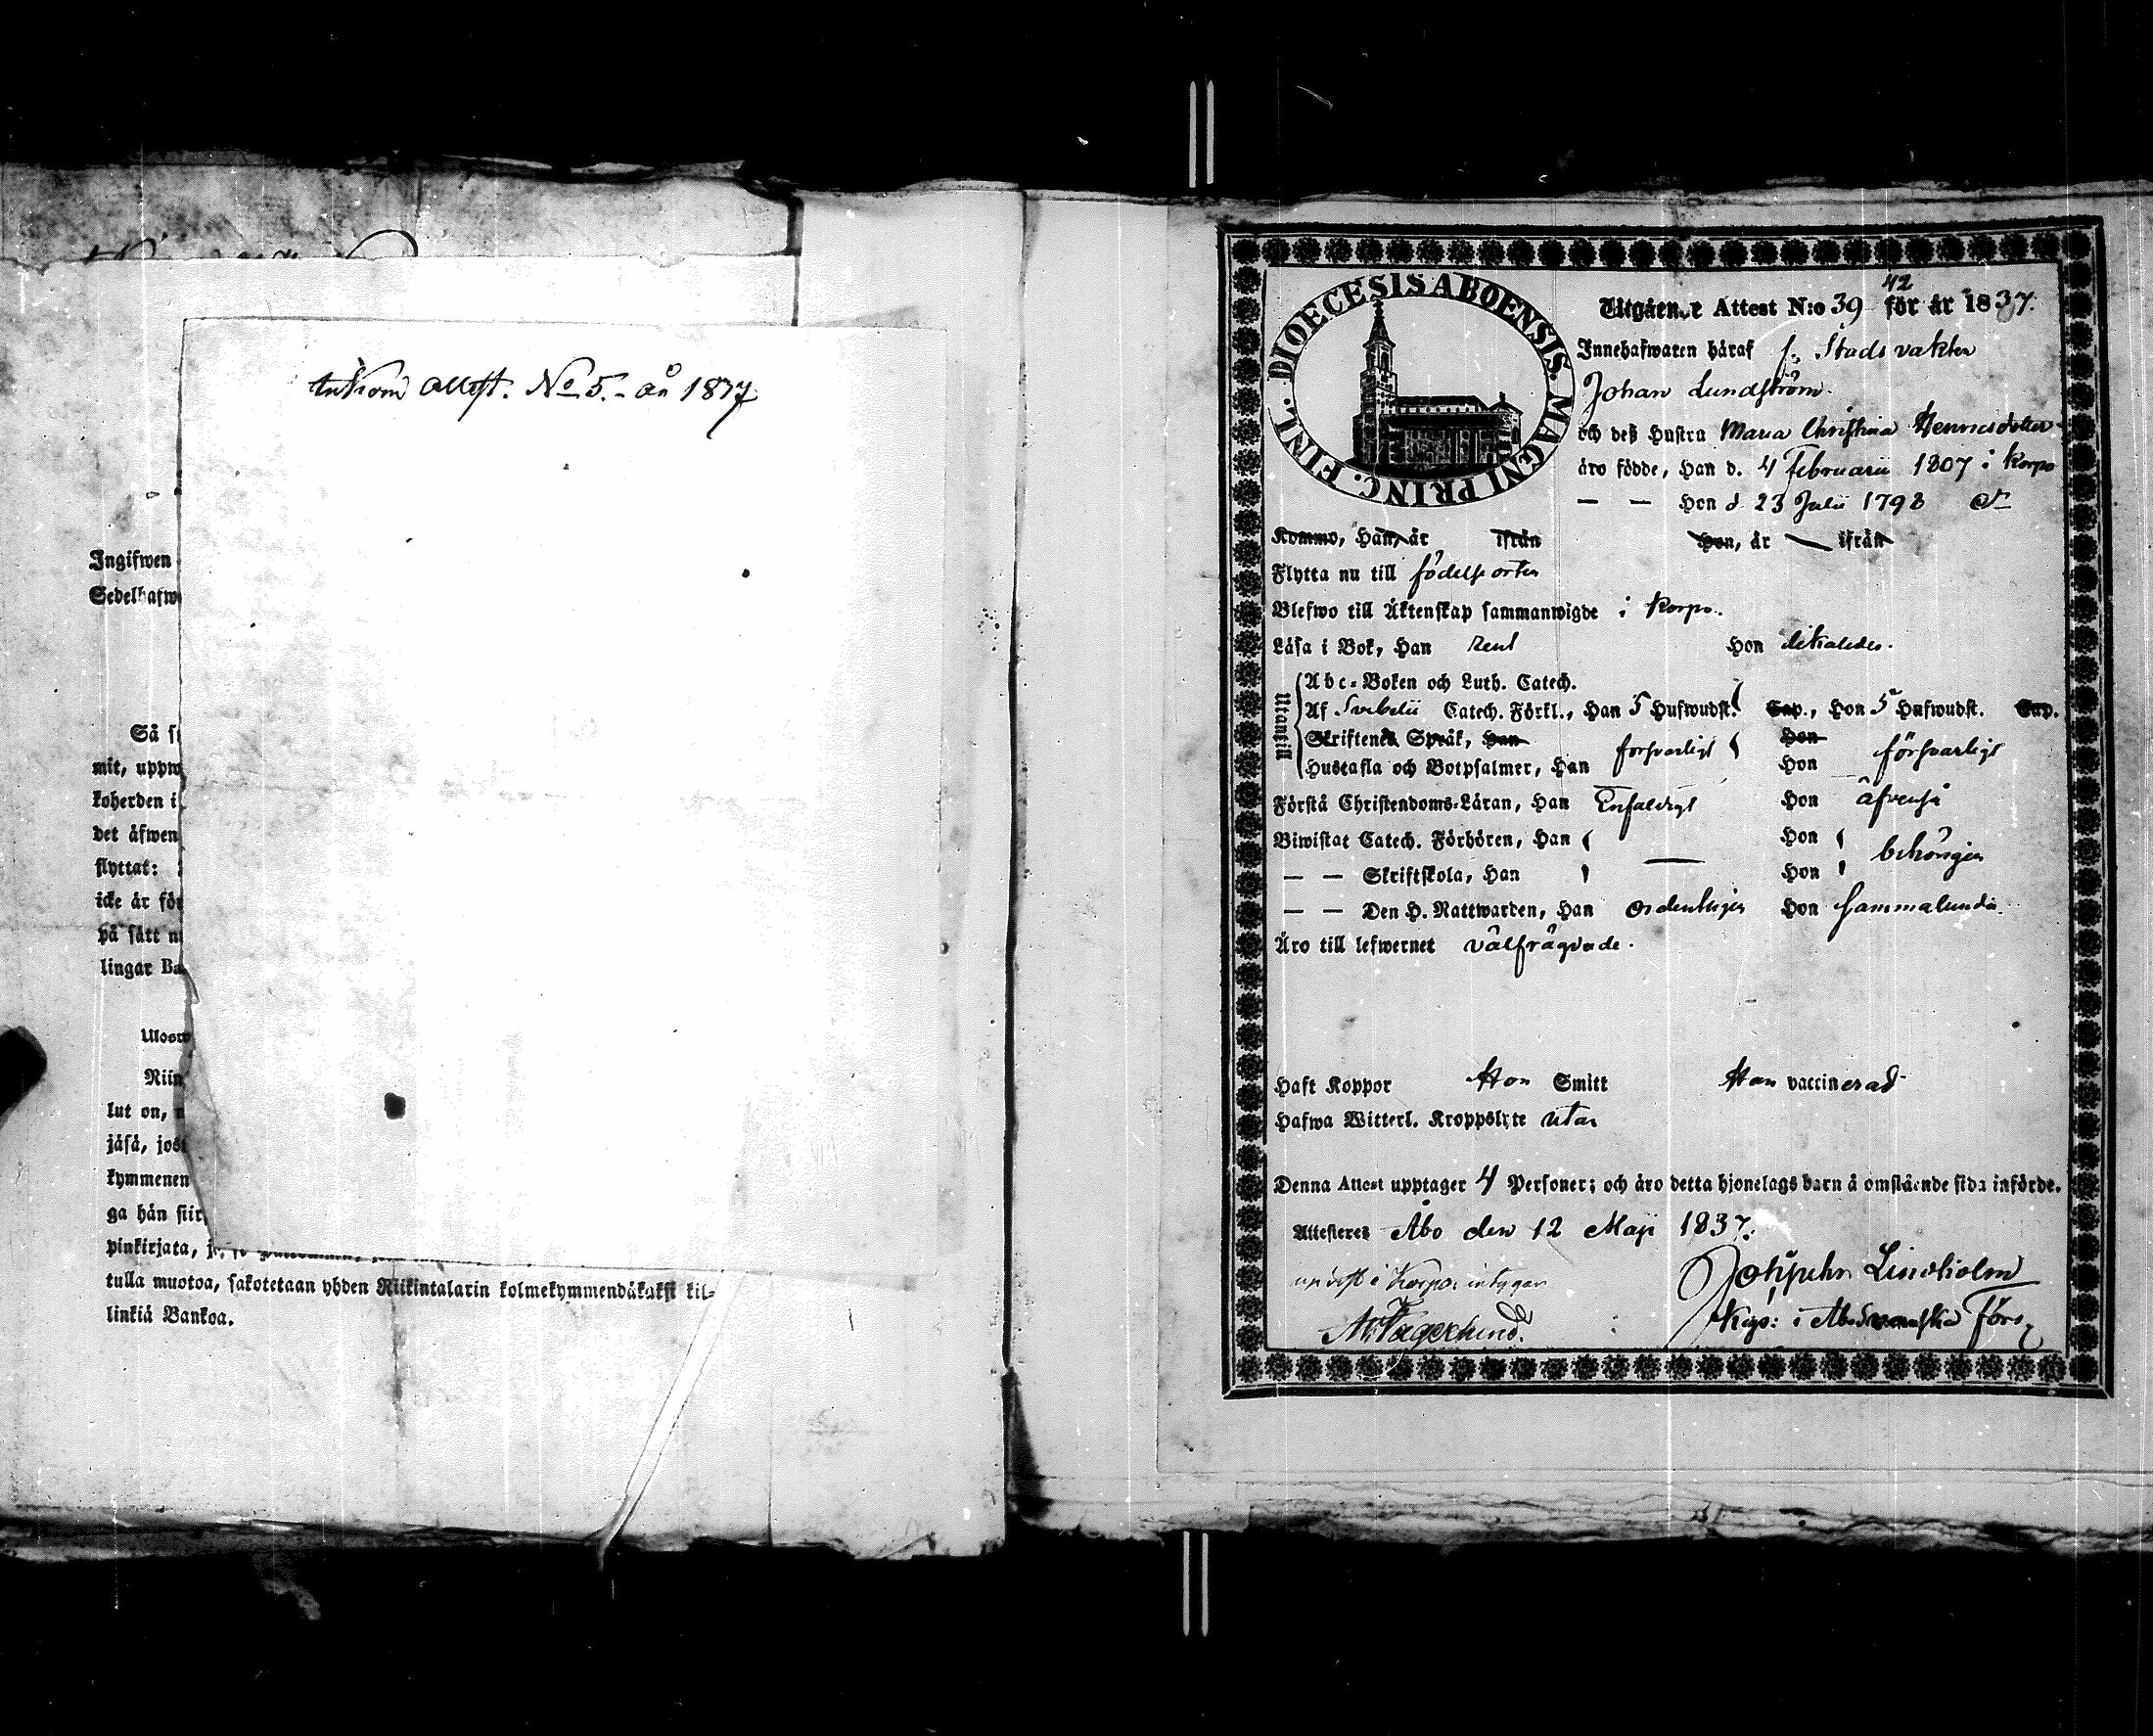 Ankom attest. No 5. - år 1837
Ingifwen
Sedelhafw
Så
mit, uppw
koherden i
det äfwen
flyttat:
icke är för
på sätt
lingar
Ulosw
Niin
lut on,
jäsä, jos
kymmenen
ga hän siir
pinkirjata,
tulla muotoa, sakotetaan yhden Riikintalarin kolmekymmendäkaksi kil-
linkiä Bankoa.
DIOECESIS ABOENSIS. MAGNI PRINC. FINL.
42
Utgående Attest N:o 39 för år 1837.
Innehafwaren häraf f. Stads vakten
Johan Lundström.
och deß Hustru Maria Christina Henricsdotter
äro födde, Han d. 4 Februarii 1807 i Korpo
— — Hon d. 23 Julii 1798
Kommo, Han, år ifrån Hon, år ifrån
Flytta nu till födelse orten
Blefwo till Äktenskap sammanwigde i Korpo.
Läsa i Bok, Han rent Hon likaledes.
Utantill
Abc-Boken och Luth. Catech.
Af Svebelii Catech. Förkl., Han 5 Hufwudst. Cap., Hon 5 Hufwudst. Cap.
Skriftenes Språk, Han försvarligt Hon försvarligt
Hustafla och Botpsalmer, Han Hon
Förstå Christendoms-Läran, Han Enfaldigt Hon äfvenså
Biwistat Catech. Förhören, Han — Hon behörigen
— — Skriftskola, Han Hon
— — Den H. Nattwarden, Han ordentligen Hon sammalunda.
Äro till lefwernet välfrägdade.
Haft Koppor Hon Smitt Han vaccinerad
Hafwa Witterl. Kroppslyte utan
Denna Attest upptager 4 Personer; och äro detta hjonelags barn å omstående sida införde.
Attesteres Åbo den 12 Maji 1837.
upvist i Korpo intygar Lindholm
Kap: i Åbo Svenska Förs.